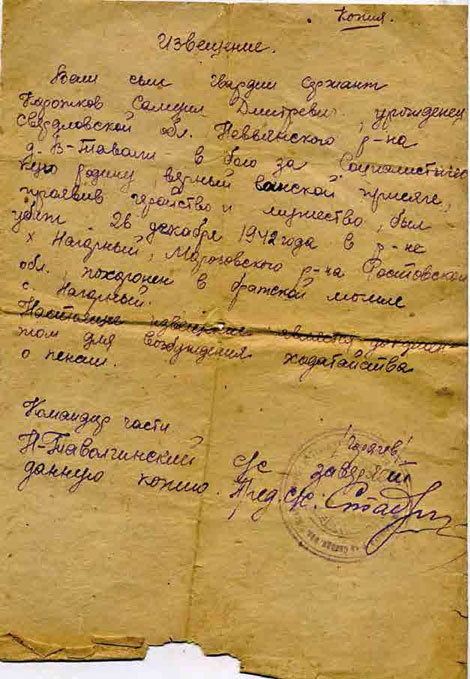 Копия.
Извещение.
Ваш сын гвардии сержант
Самуил Дмитревич, уроженец
Свердловской обл. Невьянского р-на
д. В-Таволги в бою за Социалистичес
кую родину, верный воинской присяге,
проявив геройство и мужество, был
убит 26 декабря 1942 года в р-не
х Нагорный, р-на Ростовской
обл. похоронен в братской могиле
с. Нагорный.
Настоящее извещение является докумен
том для возбуждения ходатайства
о пенсии.
Командир части
Н-Таволгинский с/с заверяет
данную копию. Пред. с/с.